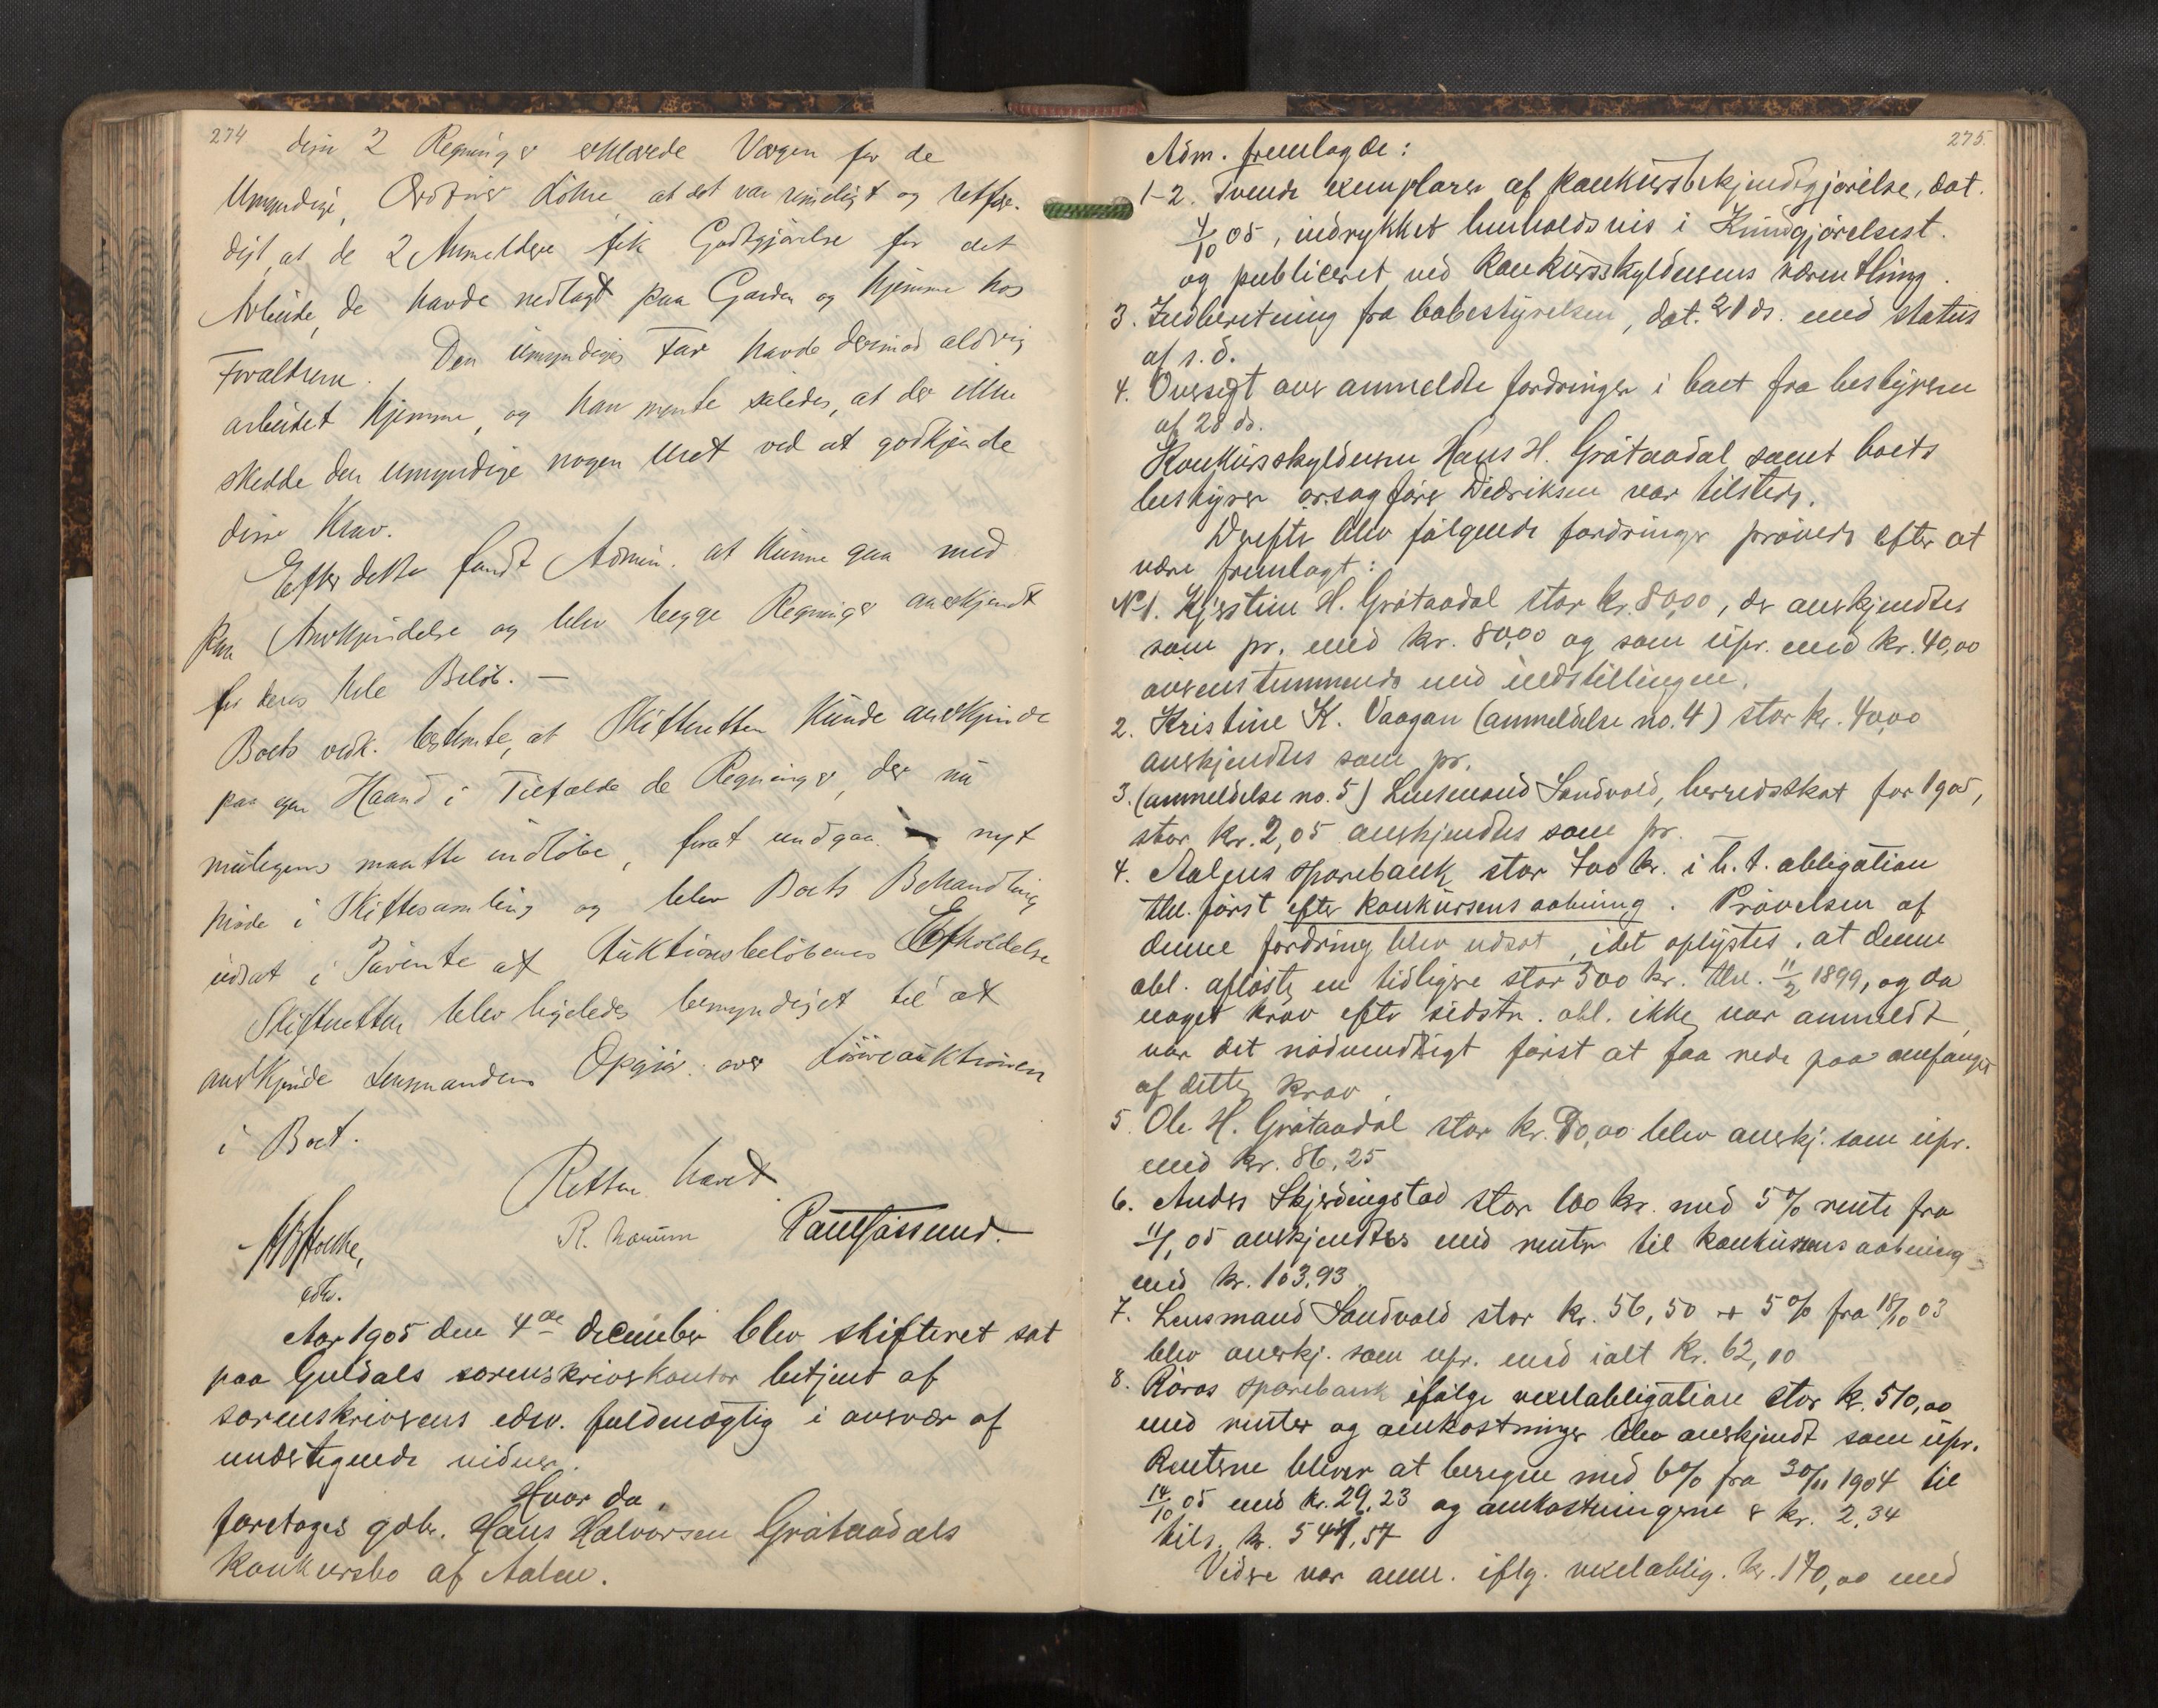 274
disse 2 Regninger erklærede Vergen for de
Umyndige, at det var rimeligt og retfær-
digt at de 2 Anmeldere fik Godtgjørelse for det
Arbeide, de havde nedlagt paa Gaarden og hjemme hos
Forældrene. Den umyndiges Far havde derimod aldrig
arbeidet hjemme, og han mente saaledes, at der ikke
skedde den umyndige nogen Uret ved at godkjende
disse Krav.
Efter dette fandt Admin. at kunne gaa med
paa Anerkjendelse og blev begge Regninger anerkjendt
for deres hele Beløb. —
Boets vedk. bestemte, at Skifteretten kunde anerkjende
paa egen Haand i Tilfælde de Regninger, der nu
muligens maatte indløbe, forat undgaa nyt
Møde i Skiftesamling og blev Boets Behandling
udsat i Påvente af Auktionsbeløbenes
Skifteretten blev ligeledes bemyndiget til at
anerkjende Lensmandens Opgjør over Løsøreauktionen
i Boet.
Retten hævet.
R. Paul Gaasund.
edsv.
Aar 1905 den 4de december blev skifteret sat
paa Guldals sorenskriverkontor betjent af
sorenskriverens edsv. fuldmægtig i overvær af
undertegnede vidner.
Hvor da,
foretoges gdbr. Hans Halvorsen Gråtaadals
konkursbo af Aalen.
275.
Adm. fremlagde:
1-2. Tvende exemplarer af konkursbekjendtgjørelse, dat.
4/10 05, indrykket henholdsvis i Kundgjørelsest.
og publiceret ved konkursskyldnerens værnething.
3. Indberetning fra bobestyrelsen, dat. 21 ds. med status
af s. d.
4. Oversigt over anmeldte fordringer i boet fra bestyreren
af 28 ds.
Konkursskyldneren Hans H. Gråtaadal samt boets
bestyrer orsagfører Didriksen var tilstede.
Derefter blev følgende fordringer prøvede efter at
være fremlagt:
No 1. Kjerstine H. Gråtaadal stor kr. 80,00, der anerkjendtes
som pr. med kr. 80,00 og som upr. med kr. 40,00
overensstemmende med indstillingen.
2. Kristine K. Vaagan (anmeldelse no. 4) stor kr. 40,00
anerkjendtes som pr.
3. (anmeldelse no. 5) Lensmand Sandvold, herredsskat for 1905,
stor kr. 2,05 anerkjendtes som pr.
4. Aalens sparebank stor 700 kr. i h. t. obligation
thl. først efter konkursens aabning. Prøvelsen af
denne fordring blev udsat, idet oplystes, at denne
obl. afløste en tidligere stor 500 kr. thl. 11/2 1899, og da
noget krav efter sidstn. obl. ikke var anmeldt,
var det nødvendigt først at faa rede paa omfanget
af dette krav.
5. Ole H. Gråtaadal stor kr. 90,00 blev anerkj. som upr.
med kr. 86,25
6. Anders Skjerdingstad stor 100 kr. med 5 % rente fra
11/1 05 anerkjendtes med renter til konkursens aabning
med kr. 103,93.
7. Lensmand Sandvold stor kr. 56,50 + 5 % fra 18/10 03
blev anerkj. som upr. med ialt kr. 62,10
8. Røros sparebank ifølge vexelobligation stor kr. 510,00
med renter og omkostninger blev anerkjendt som upr.
Renterne bliver at beregne med 6 % fra 30/11 1904 til
14/10 05 med kr. 29,23 og omkostningerne & kr. 2,34
tils. kr. 541,57
Videre var anm. iflg. vexeloblig. kr. 170,00 med